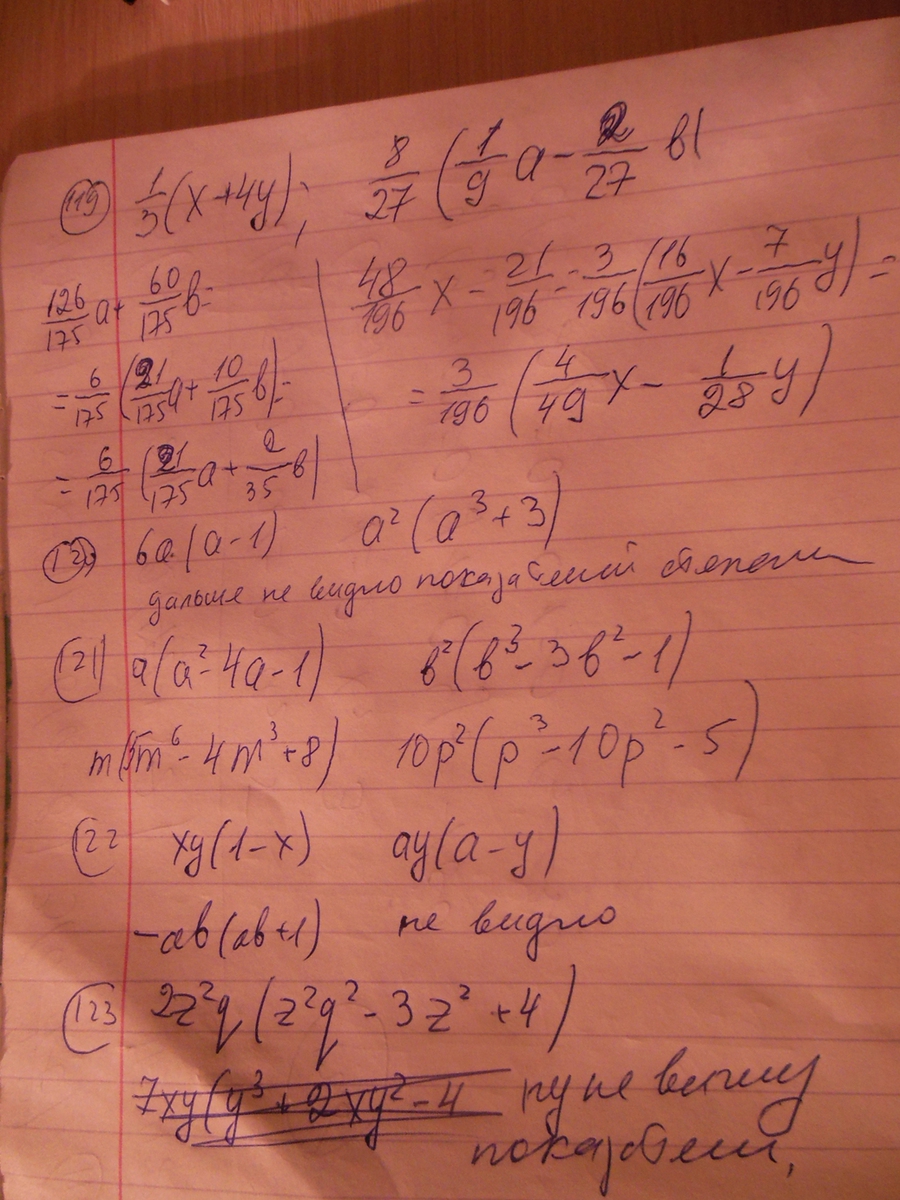 119 1/3 (x+4y); 8/27 (1/9 a - 2/27 в)
126/175 a + 60/175 в =
= 6/175 (21/175 a + 10/175 в) =
= 6/175 (21/175 a + 2/35 в)
48/196 x - 21/196 = 3/196 (16/196 x - 7/196 y) =
= 3/196 (4/49 x - 1/28 y)
120 6a (a-1) a² (a³+3)
дальше не видно показателей степени
121 a(a²-4a-1) в²(в³-3в²-1)
m(5m⁶-4m³+8) 10p²(p³-10p²-5)
122 xy(1-x) ay(a-y)
-ав(ав+1) не видно
123 2z²q(z²q²-3z²+4)
7xy(y³+2xy²-4 ну не вижу
показатели,